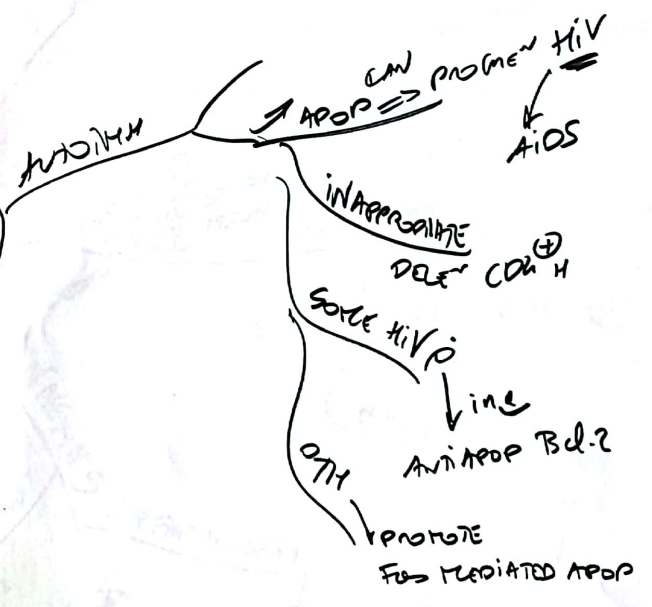 AUTOIMM
↗ APOP CAN => PROGRE~ HiV
AiDS
iNAPPROPRIATE
DELE~ CD4 ⊕ H
SOME HiV p
↓ ina
ANTiAPOP Bcl-2
OTH
PROMOTE
Fas MEDiATED APOP